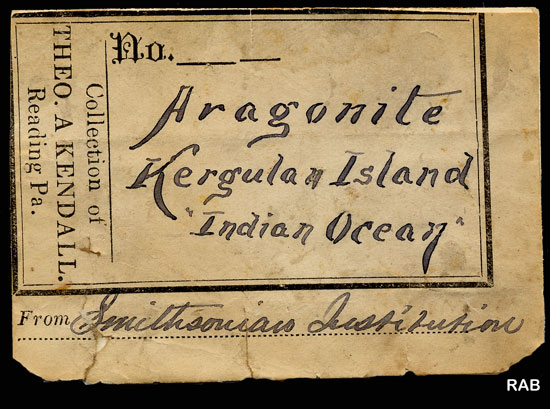 Collection of
THEO. A KENDALL.
Reading Pa.
No.
Aragonite
Kergulan Island
"Indian Ocean"
From Smithsonian Institution
RAB